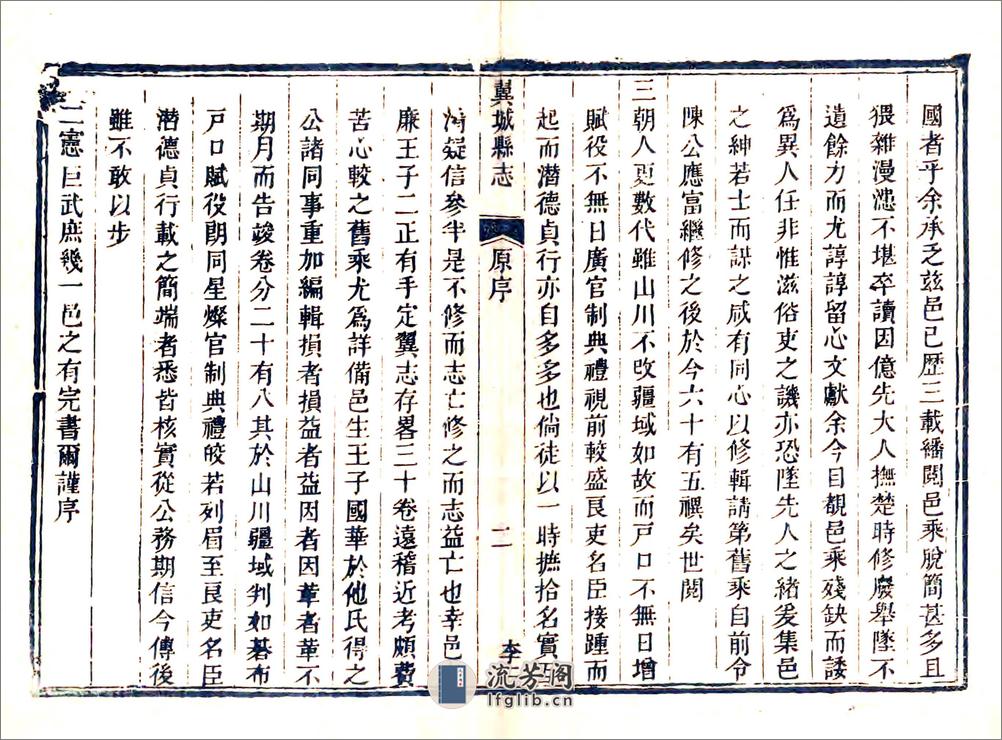 國者乎余承乏茲邑已歷三載繙閱邑乘脫簡甚多且
猥雜漫漶不堪卒讀因億先大人撫楚時修廢舉墜不
遺餘力而尤諄諄留心文獻余今目覩邑乘殘缺而諉
為異人任非惟滋俗吏之譏亦恐墜先人之緒爰集邑
之紳若士而諏之咸有同心以修輯請第舊乘自前令
陳公應富繼修之後於今六十有五禩矣世閱
三朝人更數代雖山川不改疆域如故而戶口不無日增
賦役不無日廣官制典禮視前較盛良吏名臣接踵而
起而潛德貞行亦自多多也倘徒以一時摭拾名實
翼城縣志
原序
二
李
淆疑信參半是不修而志亡修之而志益亡也幸邑
廉王子二正有手定翼志存畧三十卷遠稽近考頗費
苦心較之舊乘尤為詳備邑生王子國華於他氏得之
公諸同事重加編輯損者損益者益因者因革者革不
期月而告竣卷分二十有八其於山川疆域判如碁布
戶口賦役朗同星燦官制典禮皎若列眉至良吏名臣
潛德貞行載之簡端者悉皆核實從公務期信今傳後
雖不敢以步
二憲巨武庶幾一邑之有完書爾謹序
流芳阁
lfglib.cn